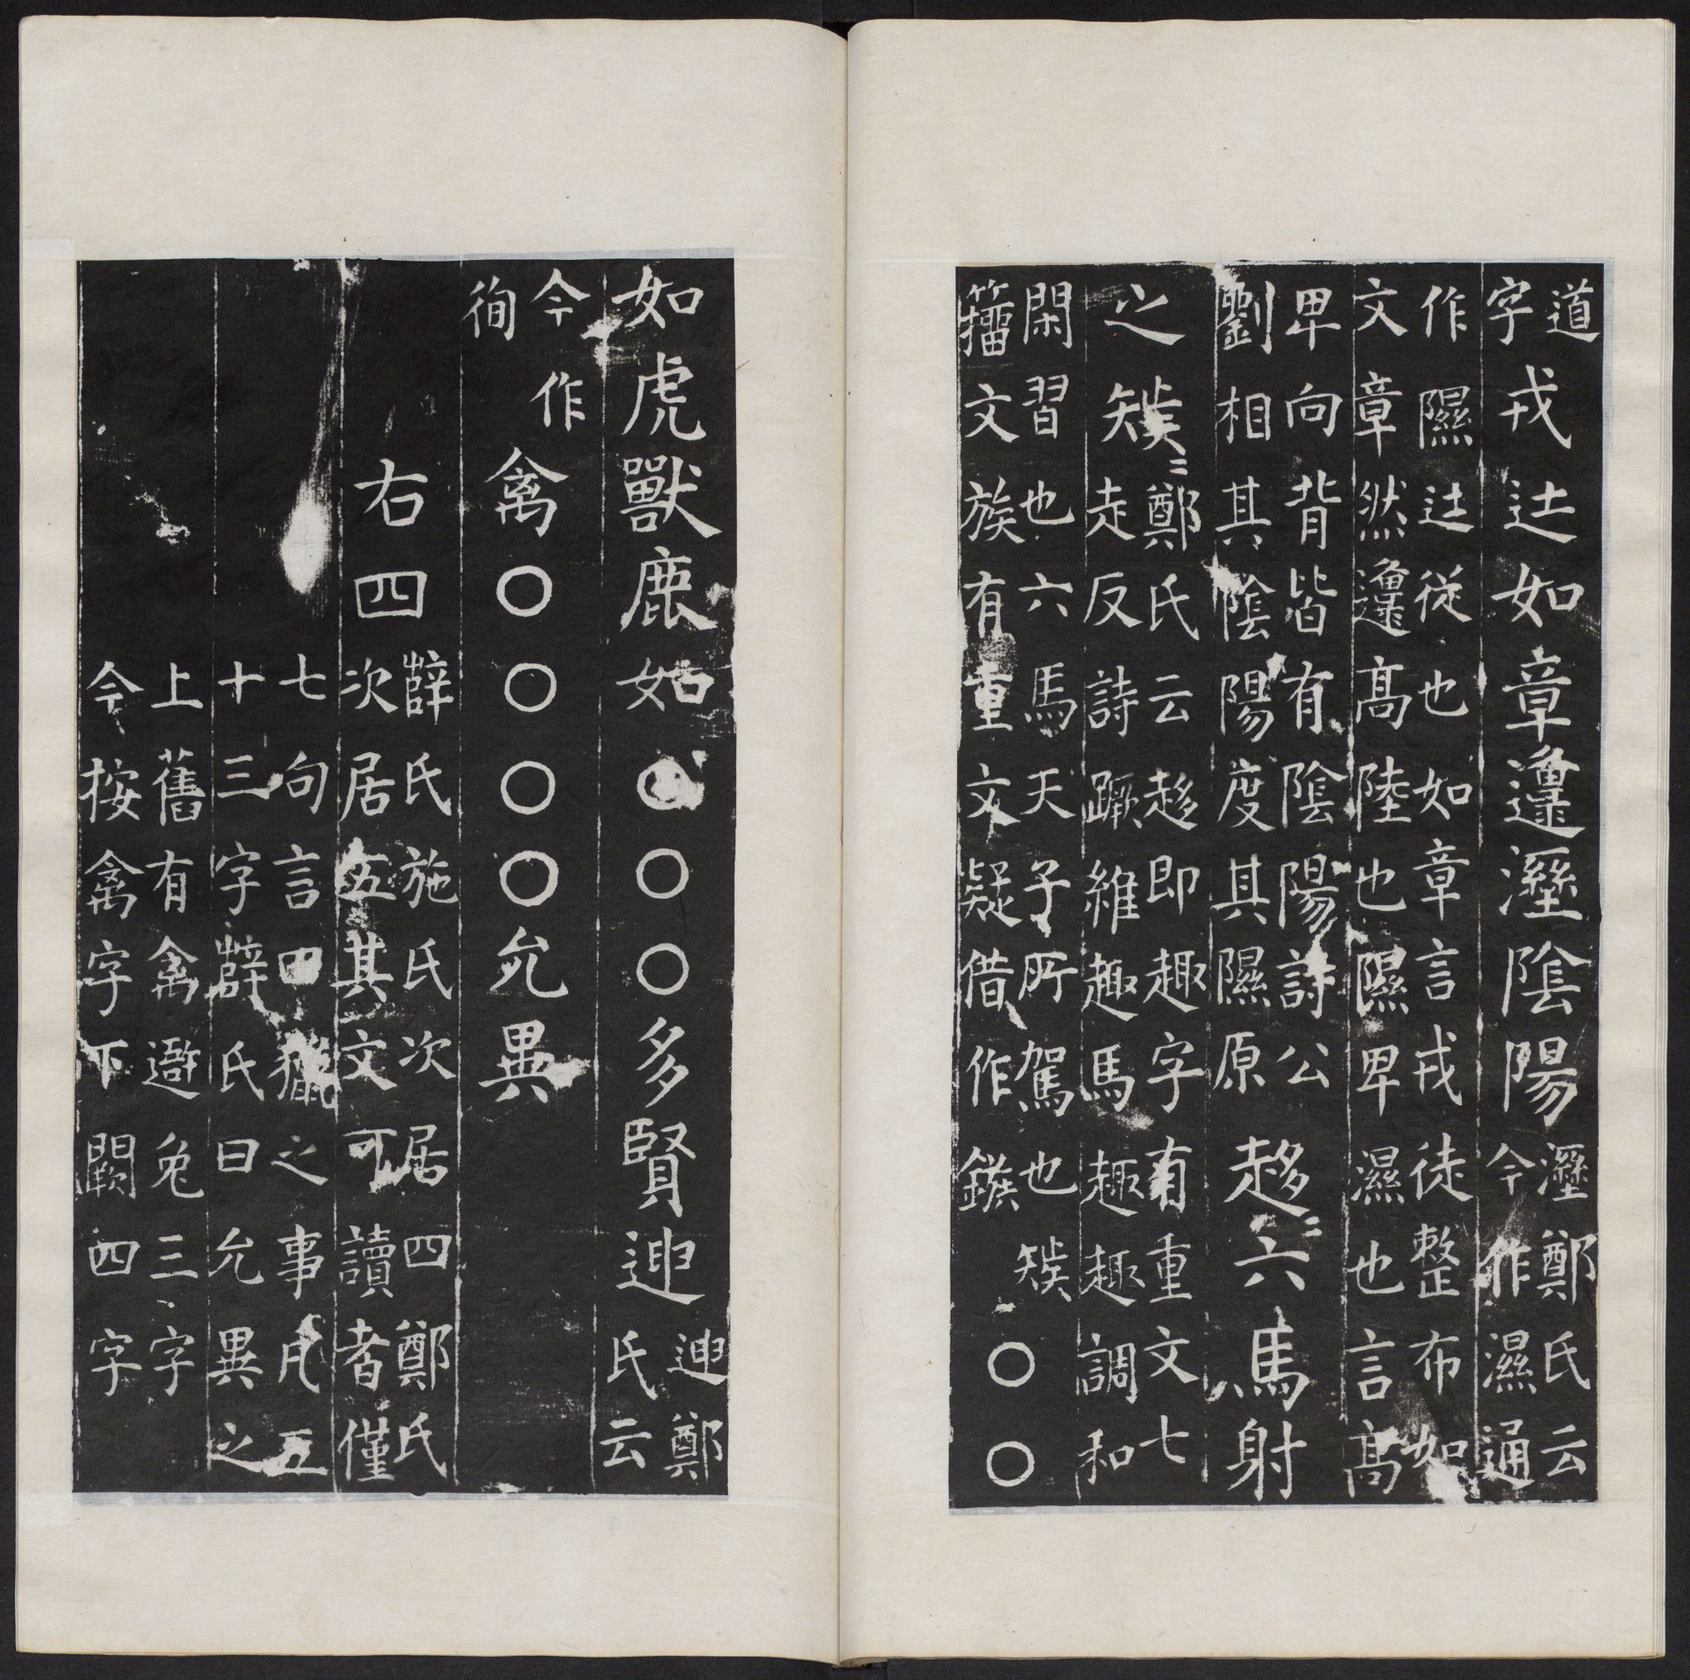 道
字
戎𨑒如章邍㶟陰陽
㶟鄭氏云
今作濕通
作隰𨑒從也如章言戎徒整布如
文章然邍高陸也隰卑濕也言高
卑向背皆有陰陽詩公
劉相其陰陽度其隰原
趍=六馬射
之=
鄭氏云趍即趣字有重文七
走反詩蹶維趣馬趣趣調和
閑習也六馬天子所駕也
籒文族有重文疑借作鏃
○○
如虎獸鹿如○○○多賢迧
迧鄭
氏云
今作
徇
禽○○○○允異
右四
辥氏施氏次居四鄭氏
次居五其文可讀者僅
七句言田獵之事凡五
十三字辥氏曰允異之
上舊有禽兔三字
今按禽字下闕四字